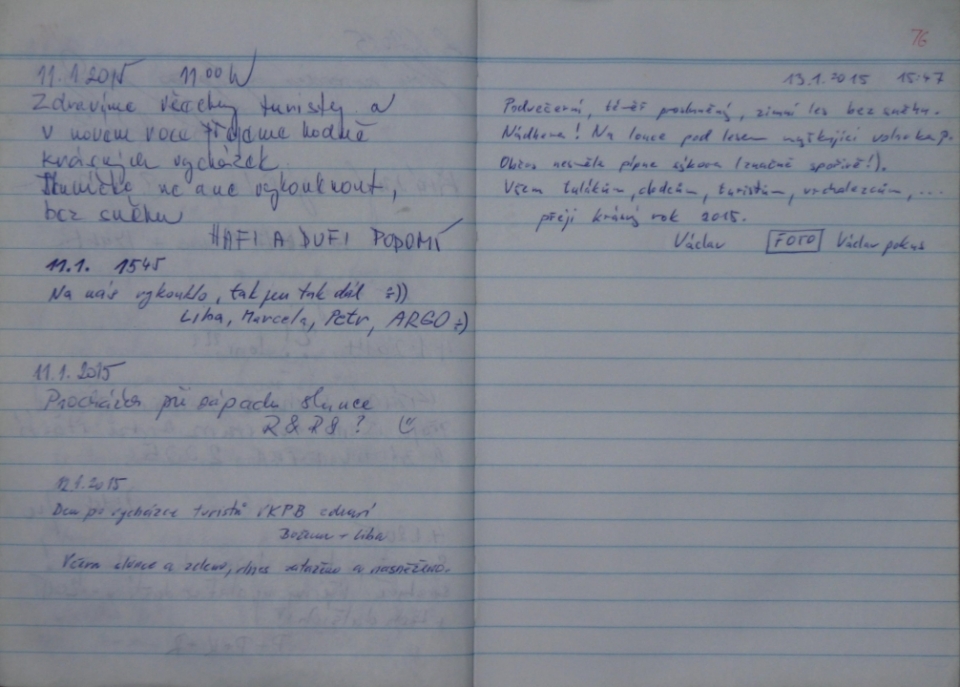 11.1.2015 11⁰⁰ h
Zdravíme všechny turisty a
v novém roce přejeme hodně
krásných vycházek.
Sluníčko ne a ne vykouknout,
bez sněhu
HAFI A DUFI PODOMÍ
11.1. 1545
Na nás vykouklo, tak jen tak dál :))
Liba, Marcela, Petr, ARGO :)
11.1.2015
Procházka při západu slunce
R & RS ?
12.1.2015
Den po vycházce turistů zdraví
Božena + Liba
Včera slunce a zeleno, dnes zataženo a zasněženo.
76
13.1.2015 15:47
Podvečerní, téměř zimní les bez sněhu.
Nádhera! Na louce pod lesem
Občas nesměle pípne sýkora (značně spořivě!).
Všem tulákům, turistům, vrcholazcům, ...
přeji krásný rok 2015.
Václav FOTO Václav